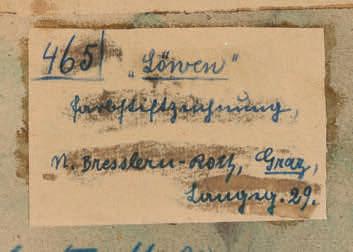 465
„Löwen"
Farbstiftzeichnung,
N. Bresslern-Roth, Graz,
Langeg. 29.